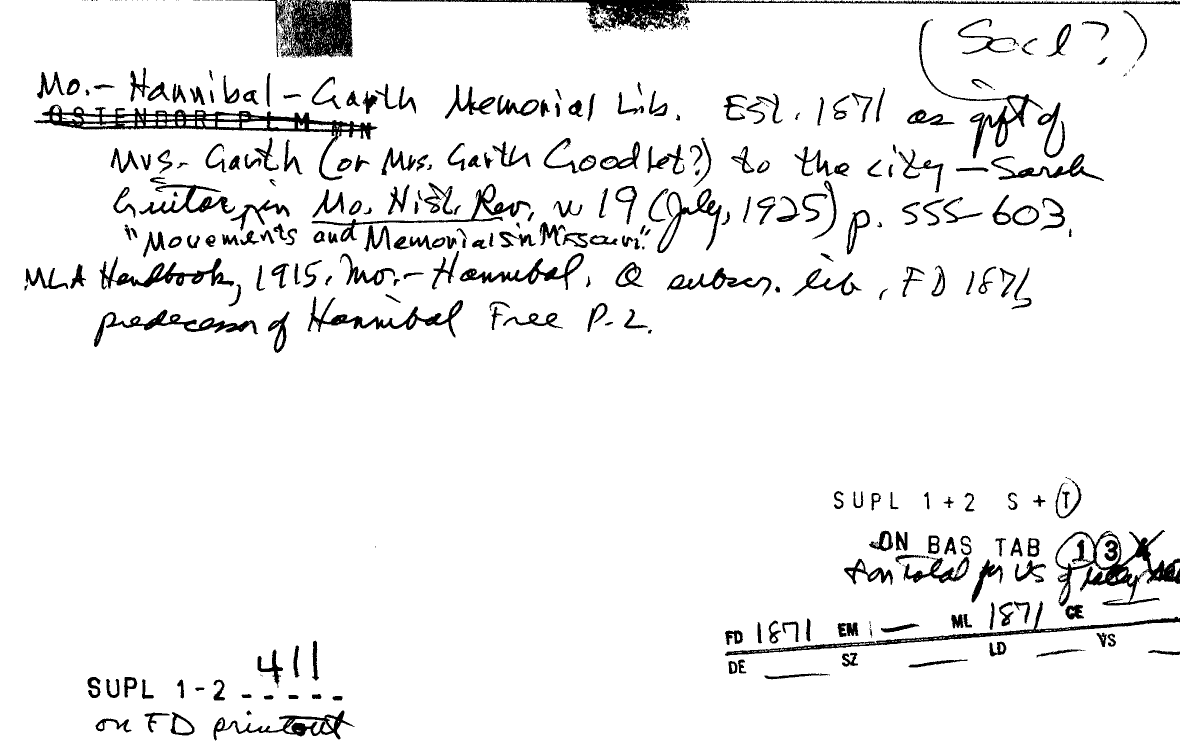 (Socl?)
Mo.- Hannibal - Garth Memorial Lib. Est. 1871 as gift of
OSTENDORF P L M MIN
Mrs. Garth (or Mrs. Garth Goodlet?) to the city - Sarah
Guitar, in Mo. Hist. Rev. v 19 (July, 1925) p. 555-603.
"Movements and Memorials in Missouri."
MLA Handbook, 1915. Mo.- Hannibal. Q subscr. lib, FD 1871,
predecessor of Hannibal Free P-L.
SUPL 1+2 S + T
ON BAS TAB 1 3
+ on total for US
FD 1871 EM — ML 1871 CE —
DE — SZ — LD — VS —
411
SUPL 1-2 - - - - -
on FD printout